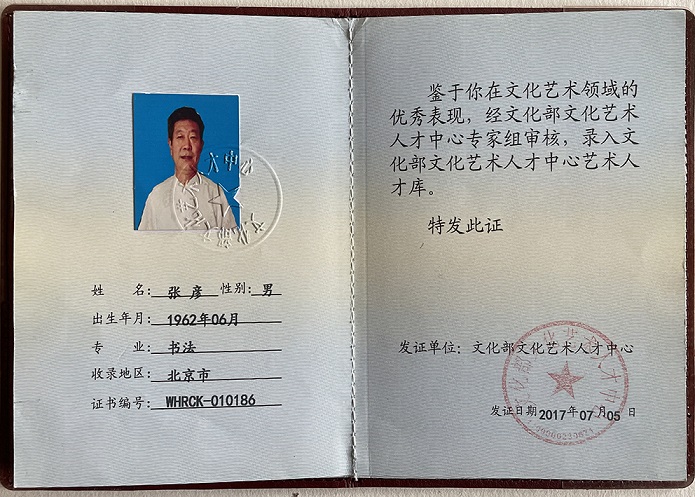 姓 名：张彦 性别：男
出生年月：1962年06月
专 业：书法
收录地区：北京市
证书编号：WHRCK-010186
鉴于你在文化艺术领域的
优秀表现，经文化部文化艺术
人才中心专家组审核，录入文
化部文化艺术人才中心艺术人
才库。
特发此证
发证单位：文化部文化艺术人才中心
发证日期2017年07月05日